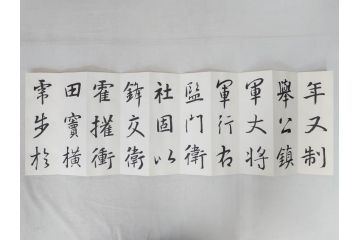 年又制
舉公鎮
軍大將
軍行右
監門衛
社固以
鋒交衛
霍擢衝
田竇橫
霄步於